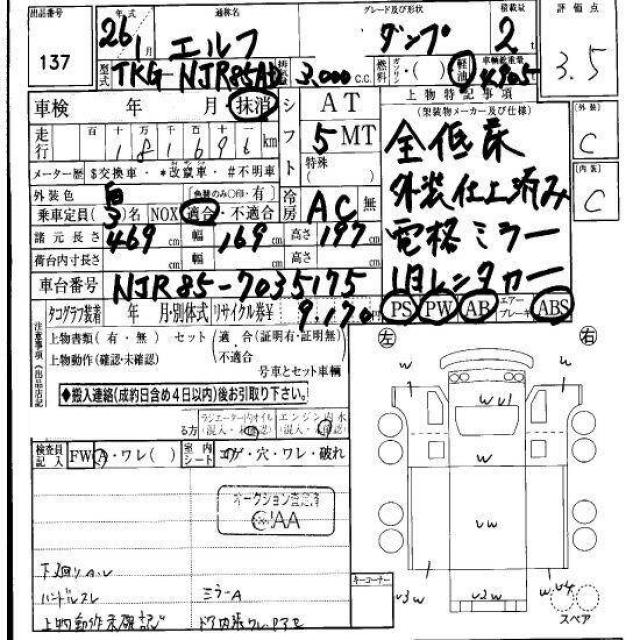 出品番号 年式 通称名 グレード及び形状 積載量 評価点
137 26年1月 エルフ ダンプ 2t 3.5
型式 TKG-NJR85AD 排気 3,000 C.C. 燃料 ガソリン・( ) 軽油 車輌総重量 4905
車検 年 月・抹消 シフト AT 上物特記事項
(架装物メーカー及び仕様)
走行 百 十 万 千 百 十
181696km 5MT 全低床
特殊( )
メーター歴 $交換車・*改竄車・#不明車 外装仕上済み
外装色 白 [色替のみ○印・有] 冷房 AC 無
乗車定員(3)名 NOX 適合・不適合 電格ミラー
諸元長さ 469cm 幅 169cm 高さ 197cm
荷台内寸長さ cm 幅 cm 高さ cm 1日レンタカー
車台番号 NJR85-7035175
PS PW AB エアーブレーキ ABS
タコグラフ装着 年 月・別体式 リサイクル券¥ 9,170円
外装 C
内装 C
注意事項(出品店記
上物書類(有・無) セット(適合(証明有・証明無)
上物動作(確認・未確認) ・不適合
号車とセット車輌
◆搬入連絡(成約日含め4日以内)後お引取り下さい。
ラジエーター内オイル エンジン内水
る方 (混入・未確認) (混入・未確認)
検査員記入 FW A・ワレ( ) 室内シート コゲ・穴・ワレ・破れ
オークション査定済
CIAA
下廻りA,U
ハンドルスレ ミラーA
上物動作未確認 ドア内張ワレ
キーコーナー
左 右
w u
w u1
w
uw
u3w u2w w u4
スペア